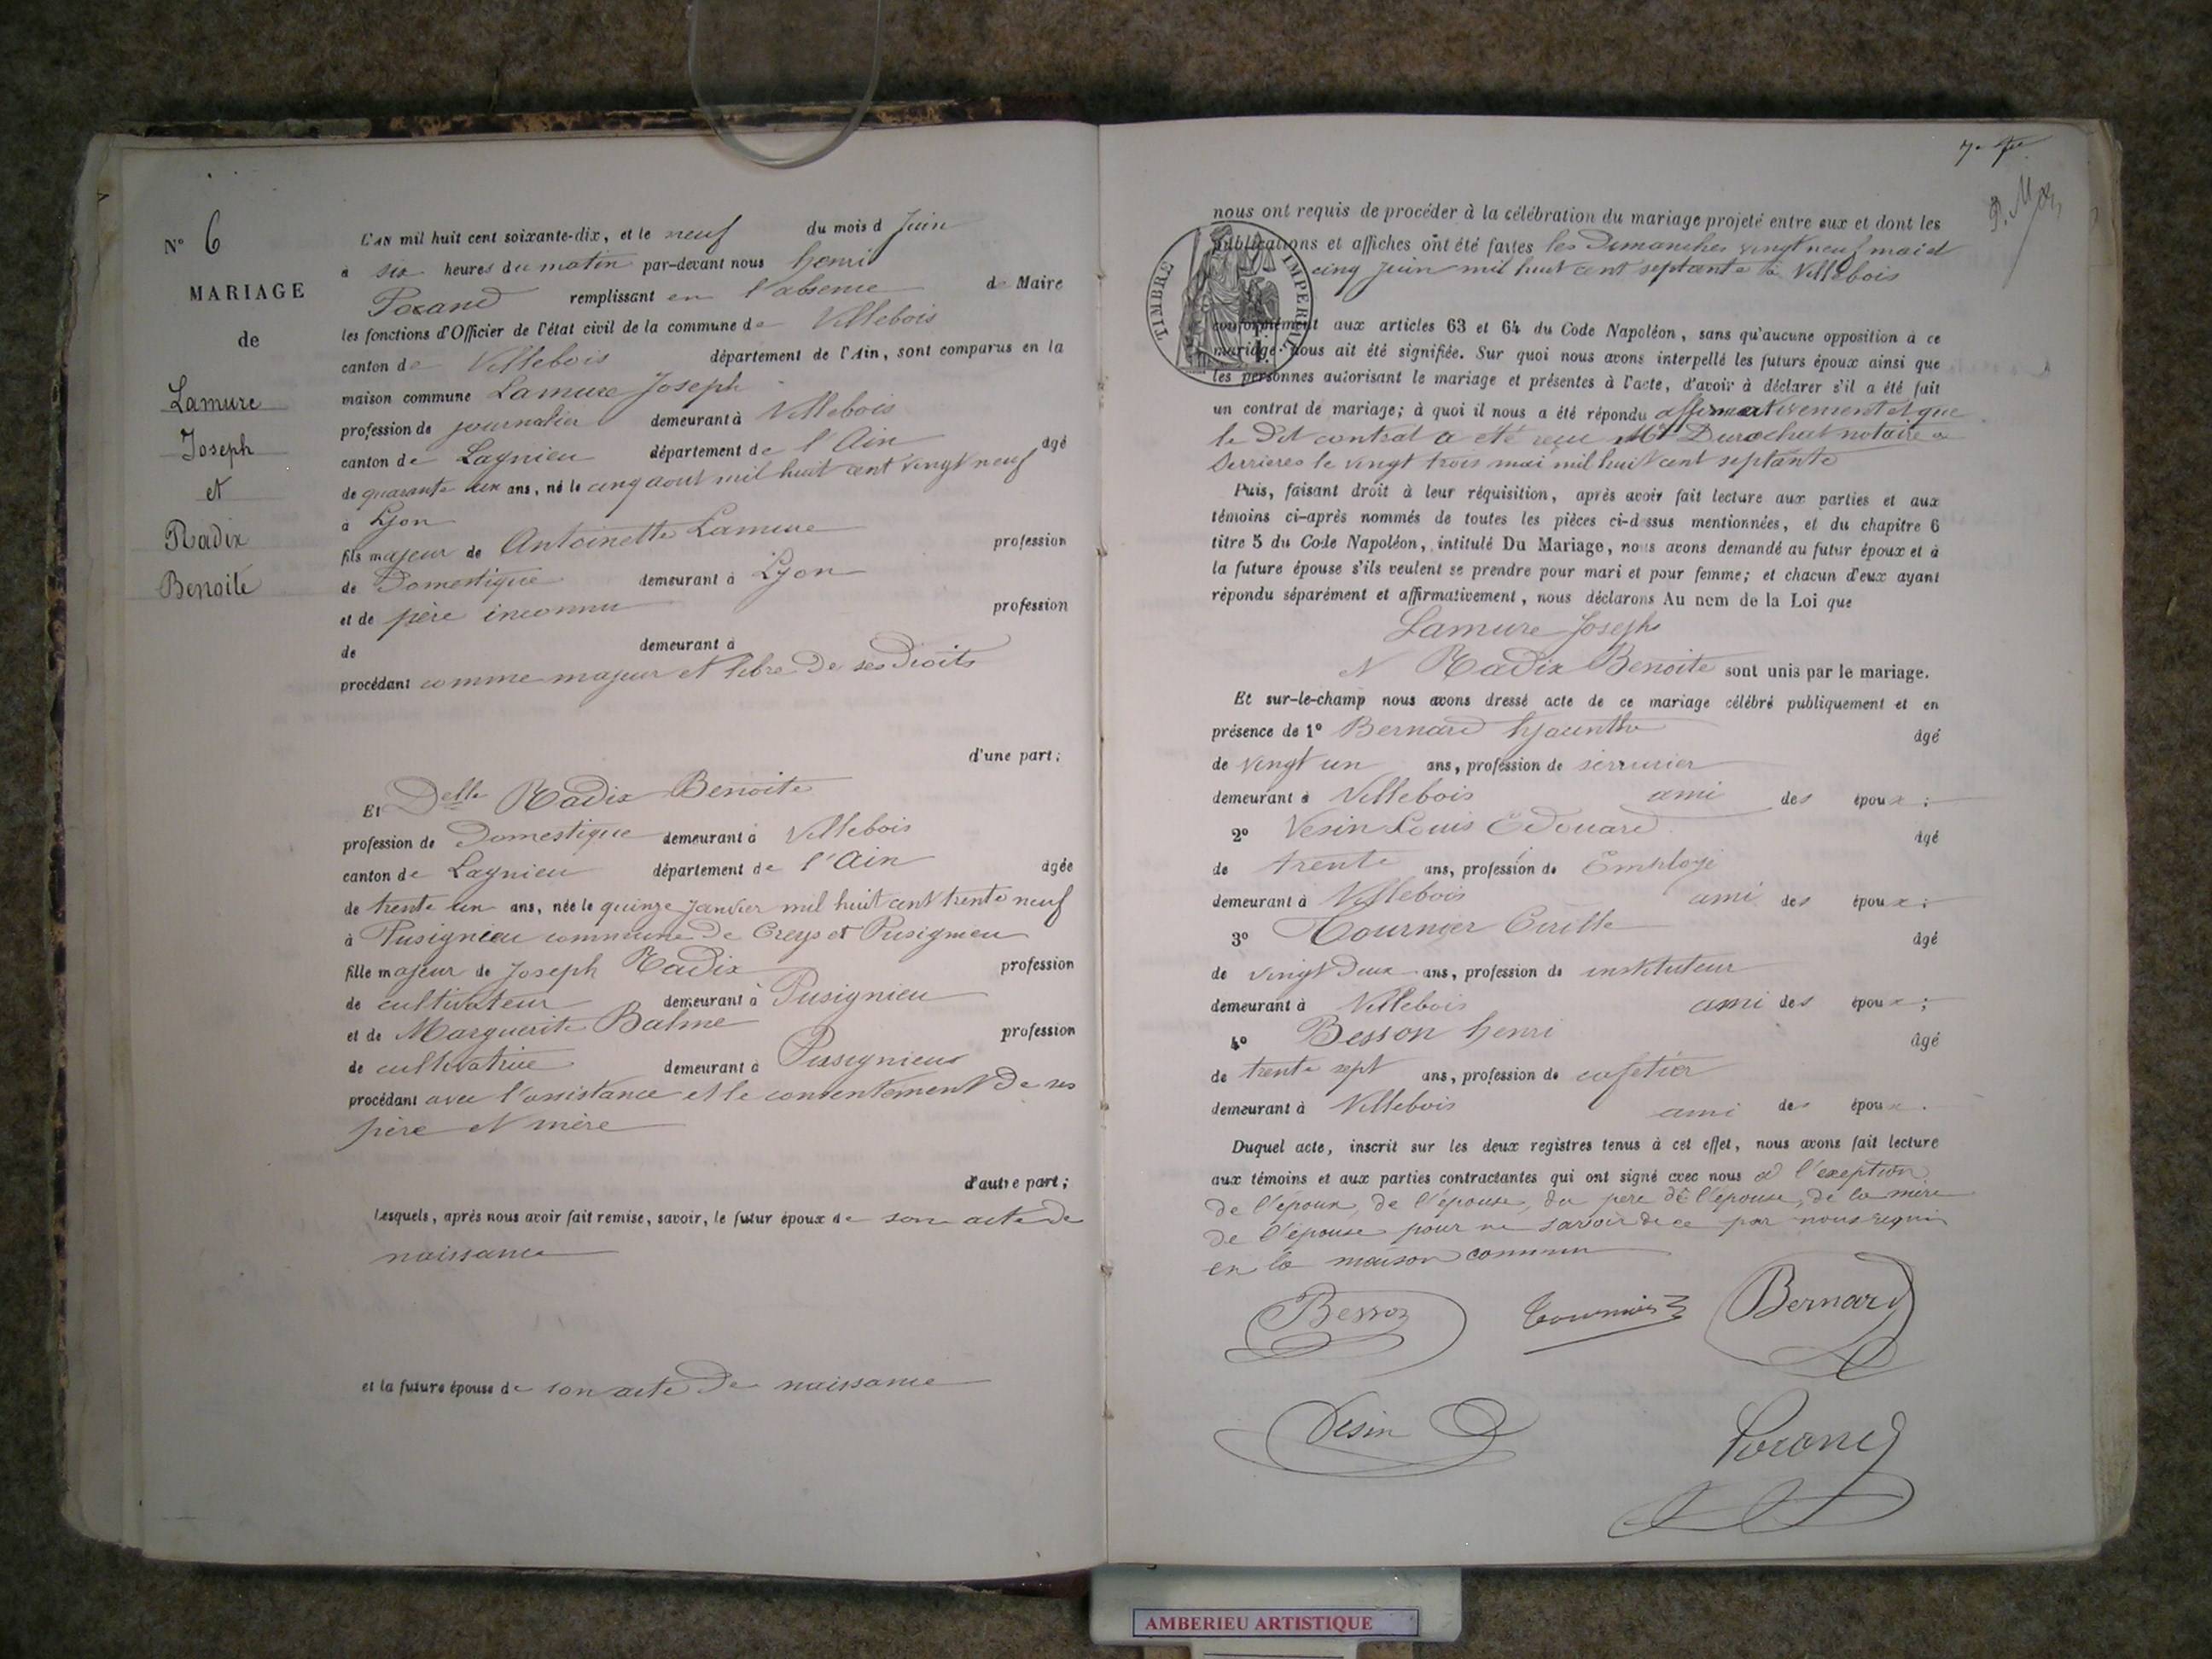 N° 6
MARIAGE
de
Lamure
Joseph
et
Radix
Benoite
L'AN mil huit cent soixante-dix, et le neuf du mois d Juin
à six heures du matin par-devant nous henri
Pocand remplissant en l'absence de Maire
les fonctions d'Officier de l'état civil de la commune de Villebois
canton de Villebois département de l'Ain, sont comparus en la
maison commune Lamure Joseph
profession de journalier demeurant à Villebois
canton de Lagnieu département de l'Ain âgé
de quarante ans, né le cinq aout mil huit cent vingt neuf
à Lyon
fils majeur de Antoinette Lamure profession
de Domestique demeurant à Lyon
et de père inconnu profession
de demeurant à
procédant comme majeur et libre de ses droits
d'une part;
Et Delle Radix Benoite
profession de Domestique demeurant à Villebois
canton de Lagnieu département de l'Ain âgée
de trente un ans, née le quinze janvier mil huit cent trente neuf
à Pusignieu commune de Creys et Pusignieu
fille majeur de Joseph Radix profession
de cultivateur demeurant à Pusignieu
et de Marguerite Balme profession
de cultivatrice demeurant à Pusignieu
procédant avec l'assistance et le consentement de ses
père et mère
d'autre part;
Lesquels, après nous avoir fait remise, savoir, le futur époux de son acte de
naissance
et la future épouse de son acte de naissance
nous ont requis de procéder à la célébration du mariage projeté entre eux et dont les
publications et affiches ont été faites les Dimanches vingt neuf mai et
cinq juin mil huit cent septante à Villebois
TIMBRE IMPERIAL
conformément aux articles 63 et 64 du Code Napoléon, sans qu'aucune opposition à ce
mariage nous ait été signifiée. Sur quoi nous avons interpellé les futurs époux ainsi que
les personnes autorisant le mariage et présentes à l'acte, d'avoir à déclarer s'il a été fait
un contrat de mariage; à quoi il nous a été répondu affirmativement et que
le dit contrat a été reçu Mt Durochat notaire a
Serrieres le vingt trois mai mil huit cent septante
Puis, faisant droit à leur réquisition, après avoir fait lecture aux parties et aux
témoins ci-après nommés de toutes les pièces ci-dessus mentionnées, et du chapitre 6
titre 5 du Code Napoléon, intitulé Du Mariage, nous avons demandé au futur époux et à
la future épouse s'ils veulent se prendre pour mari et pour femme; et chacun d'eux ayant
répondu séparément et affirmativement, nous déclarons Au nom de la Loi que
Lamure Joseph
et Radix Benoite sont unis par le mariage.
Et sur-le-champ nous avons dressé acte de ce mariage célébré publiquement et en
présence de 1° Bernard hyacinthe âgé
de vingt un ans, profession de serrurier
demeurant à Villebois ami des époux;
2° Vesin Louis Edouard âgé
de trente ans, profession de Employé
demeurant à Villebois ami des époux;
3° Tournier Cirille âgé
de vingt deux ans, profession de instituteur
demeurant à Villebois ami des époux;
4° Besson henri âgé
de trente sept ans, profession de cafetier
demeurant à Villebois ami des époux.
Duquel acte, inscrit sur les deux registres tenus à cet effet, nous avons fait lecture
aux témoins et aux parties contractantes qui ont signé avec nous à l'exeption
de l'époux, de l'épouse, du père de l'épouse, de la mère
de l'épouse pour ne savoir de ce par nous requis
en la maison commun
Besson Tournier Bernard
Vesin Pocand
AMBERIEU ARTISTIQUE